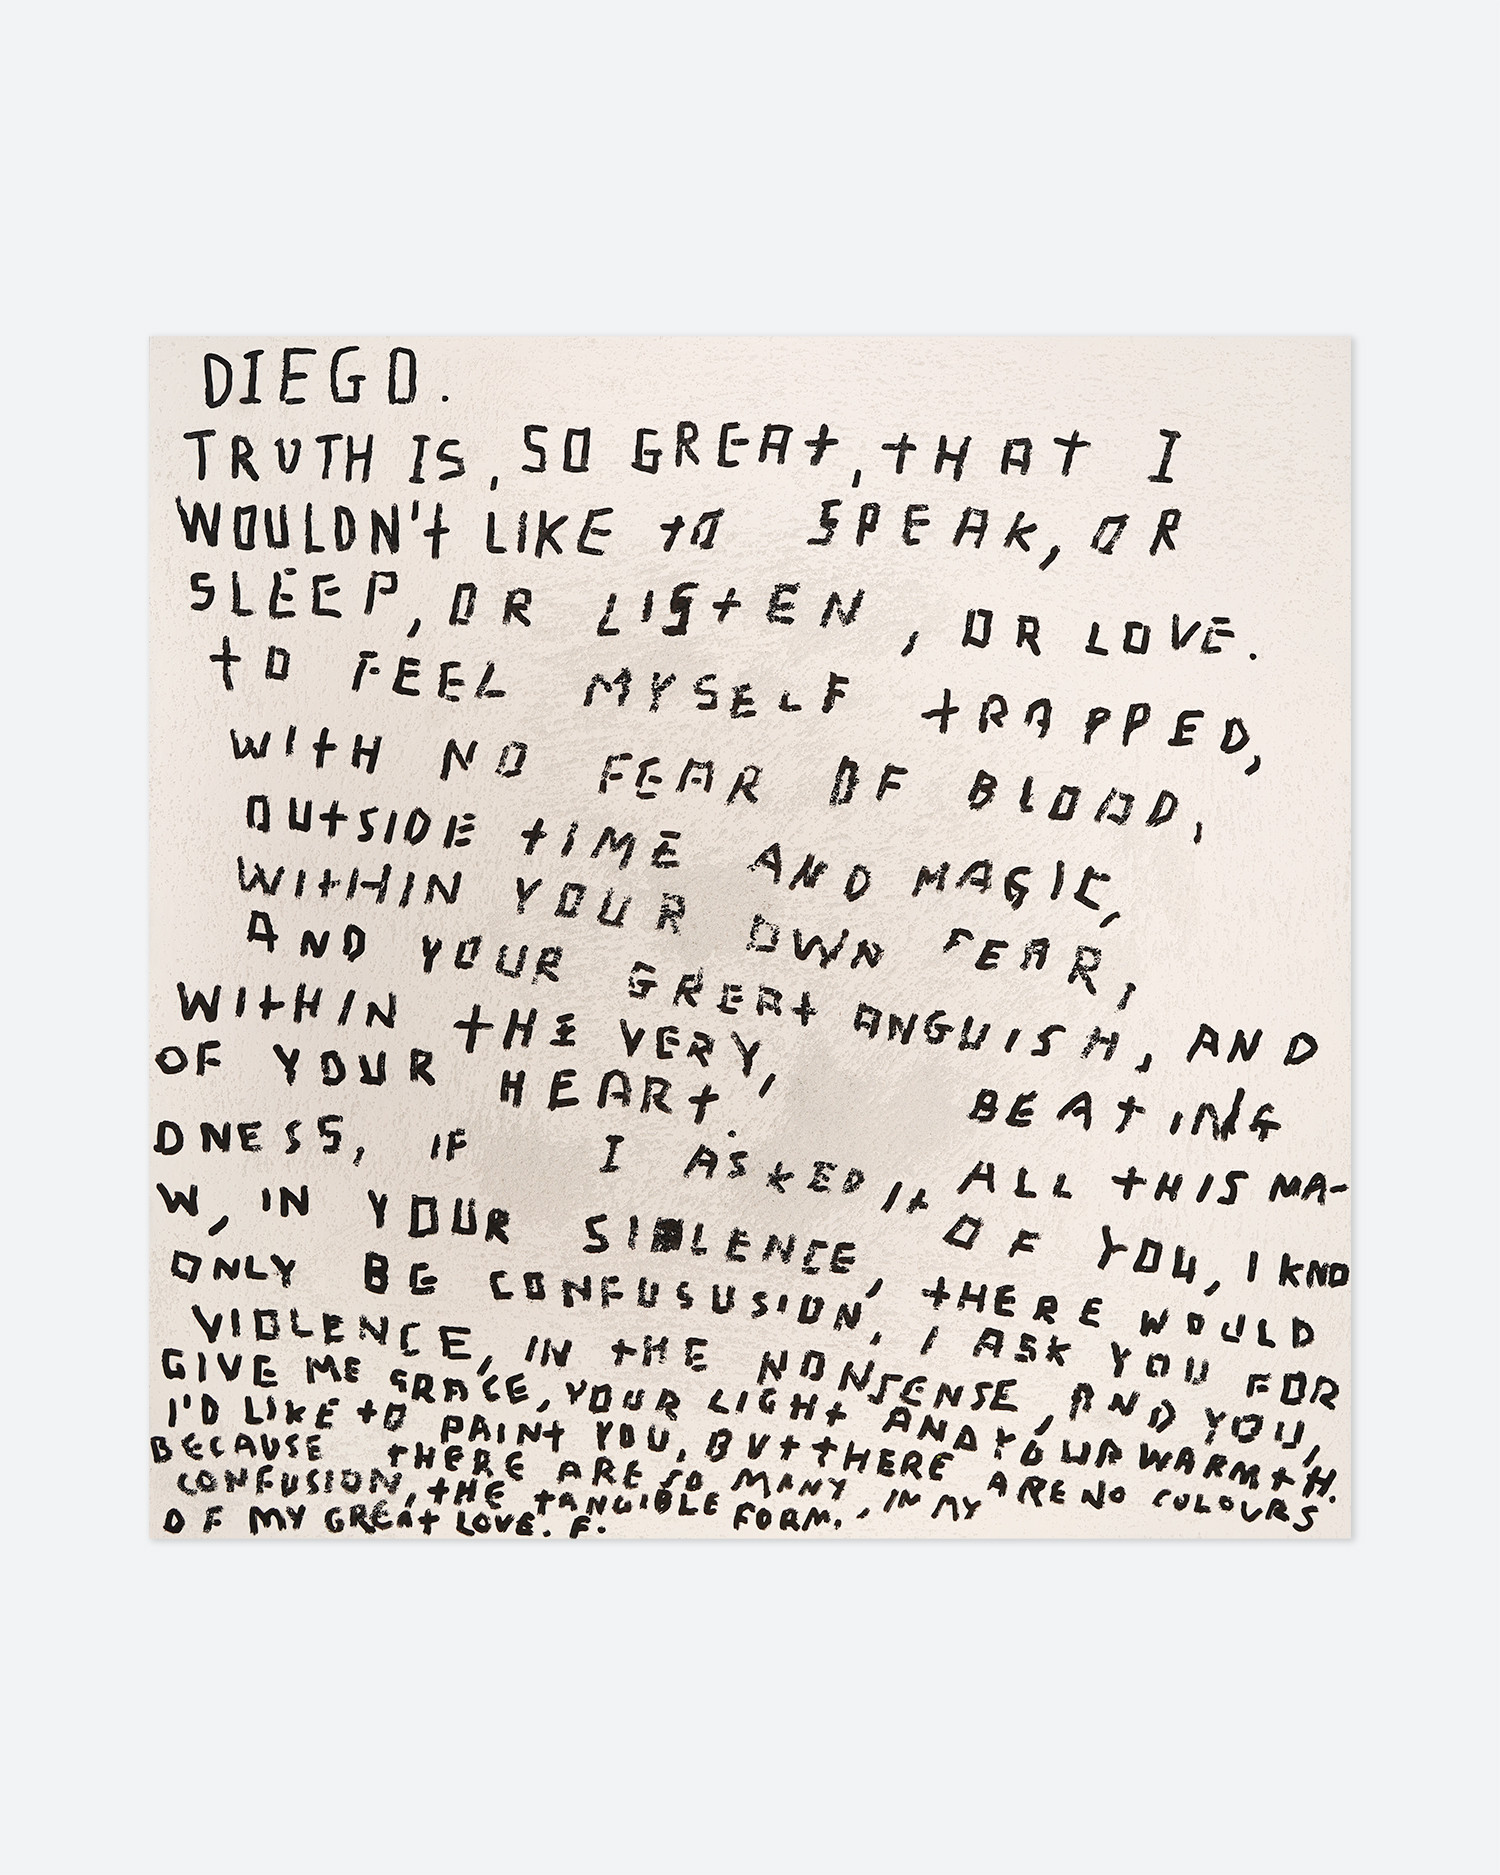 DIEGO.
TRUTH IS, SO GREAT, THAT I
WOULDN'T LIKE TO SPEAK, OR
SLEEP, OR LISTEN, OR LOVE.
TO FEEL MYSELF TRAPPED,
WITH NO FEAR OF BLOOD,
OUTSIDE TIME AND MAGIC,
WITHIN YOUR OWN FEAR,
AND YOUR GREAT ANGUISH, AND
WITHIN THE VERY, BEATING
OF YOUR HEART. ALL THIS MA-
DNESS, IF I ASKED IT OF YOU, I KNO
W, IN YOUR SILENCE, THERE WOULD
ONLY BE CONFUSUSION, I ASK YOU FOR
VIOLENCE, IN THE NONSENSE, AND YOU,
GIVE ME GRACE, YOUR LIGHT AND YOUR WARMTH.
I'D LIKE TO PAINT YOU, BUT THERE ARE NO COLOURS
BECAUSE THERE ARE SO MANY, IN MY
CONFUSION, THE TANGIBLE FORM.
OF MY GREAT LOVE. F.